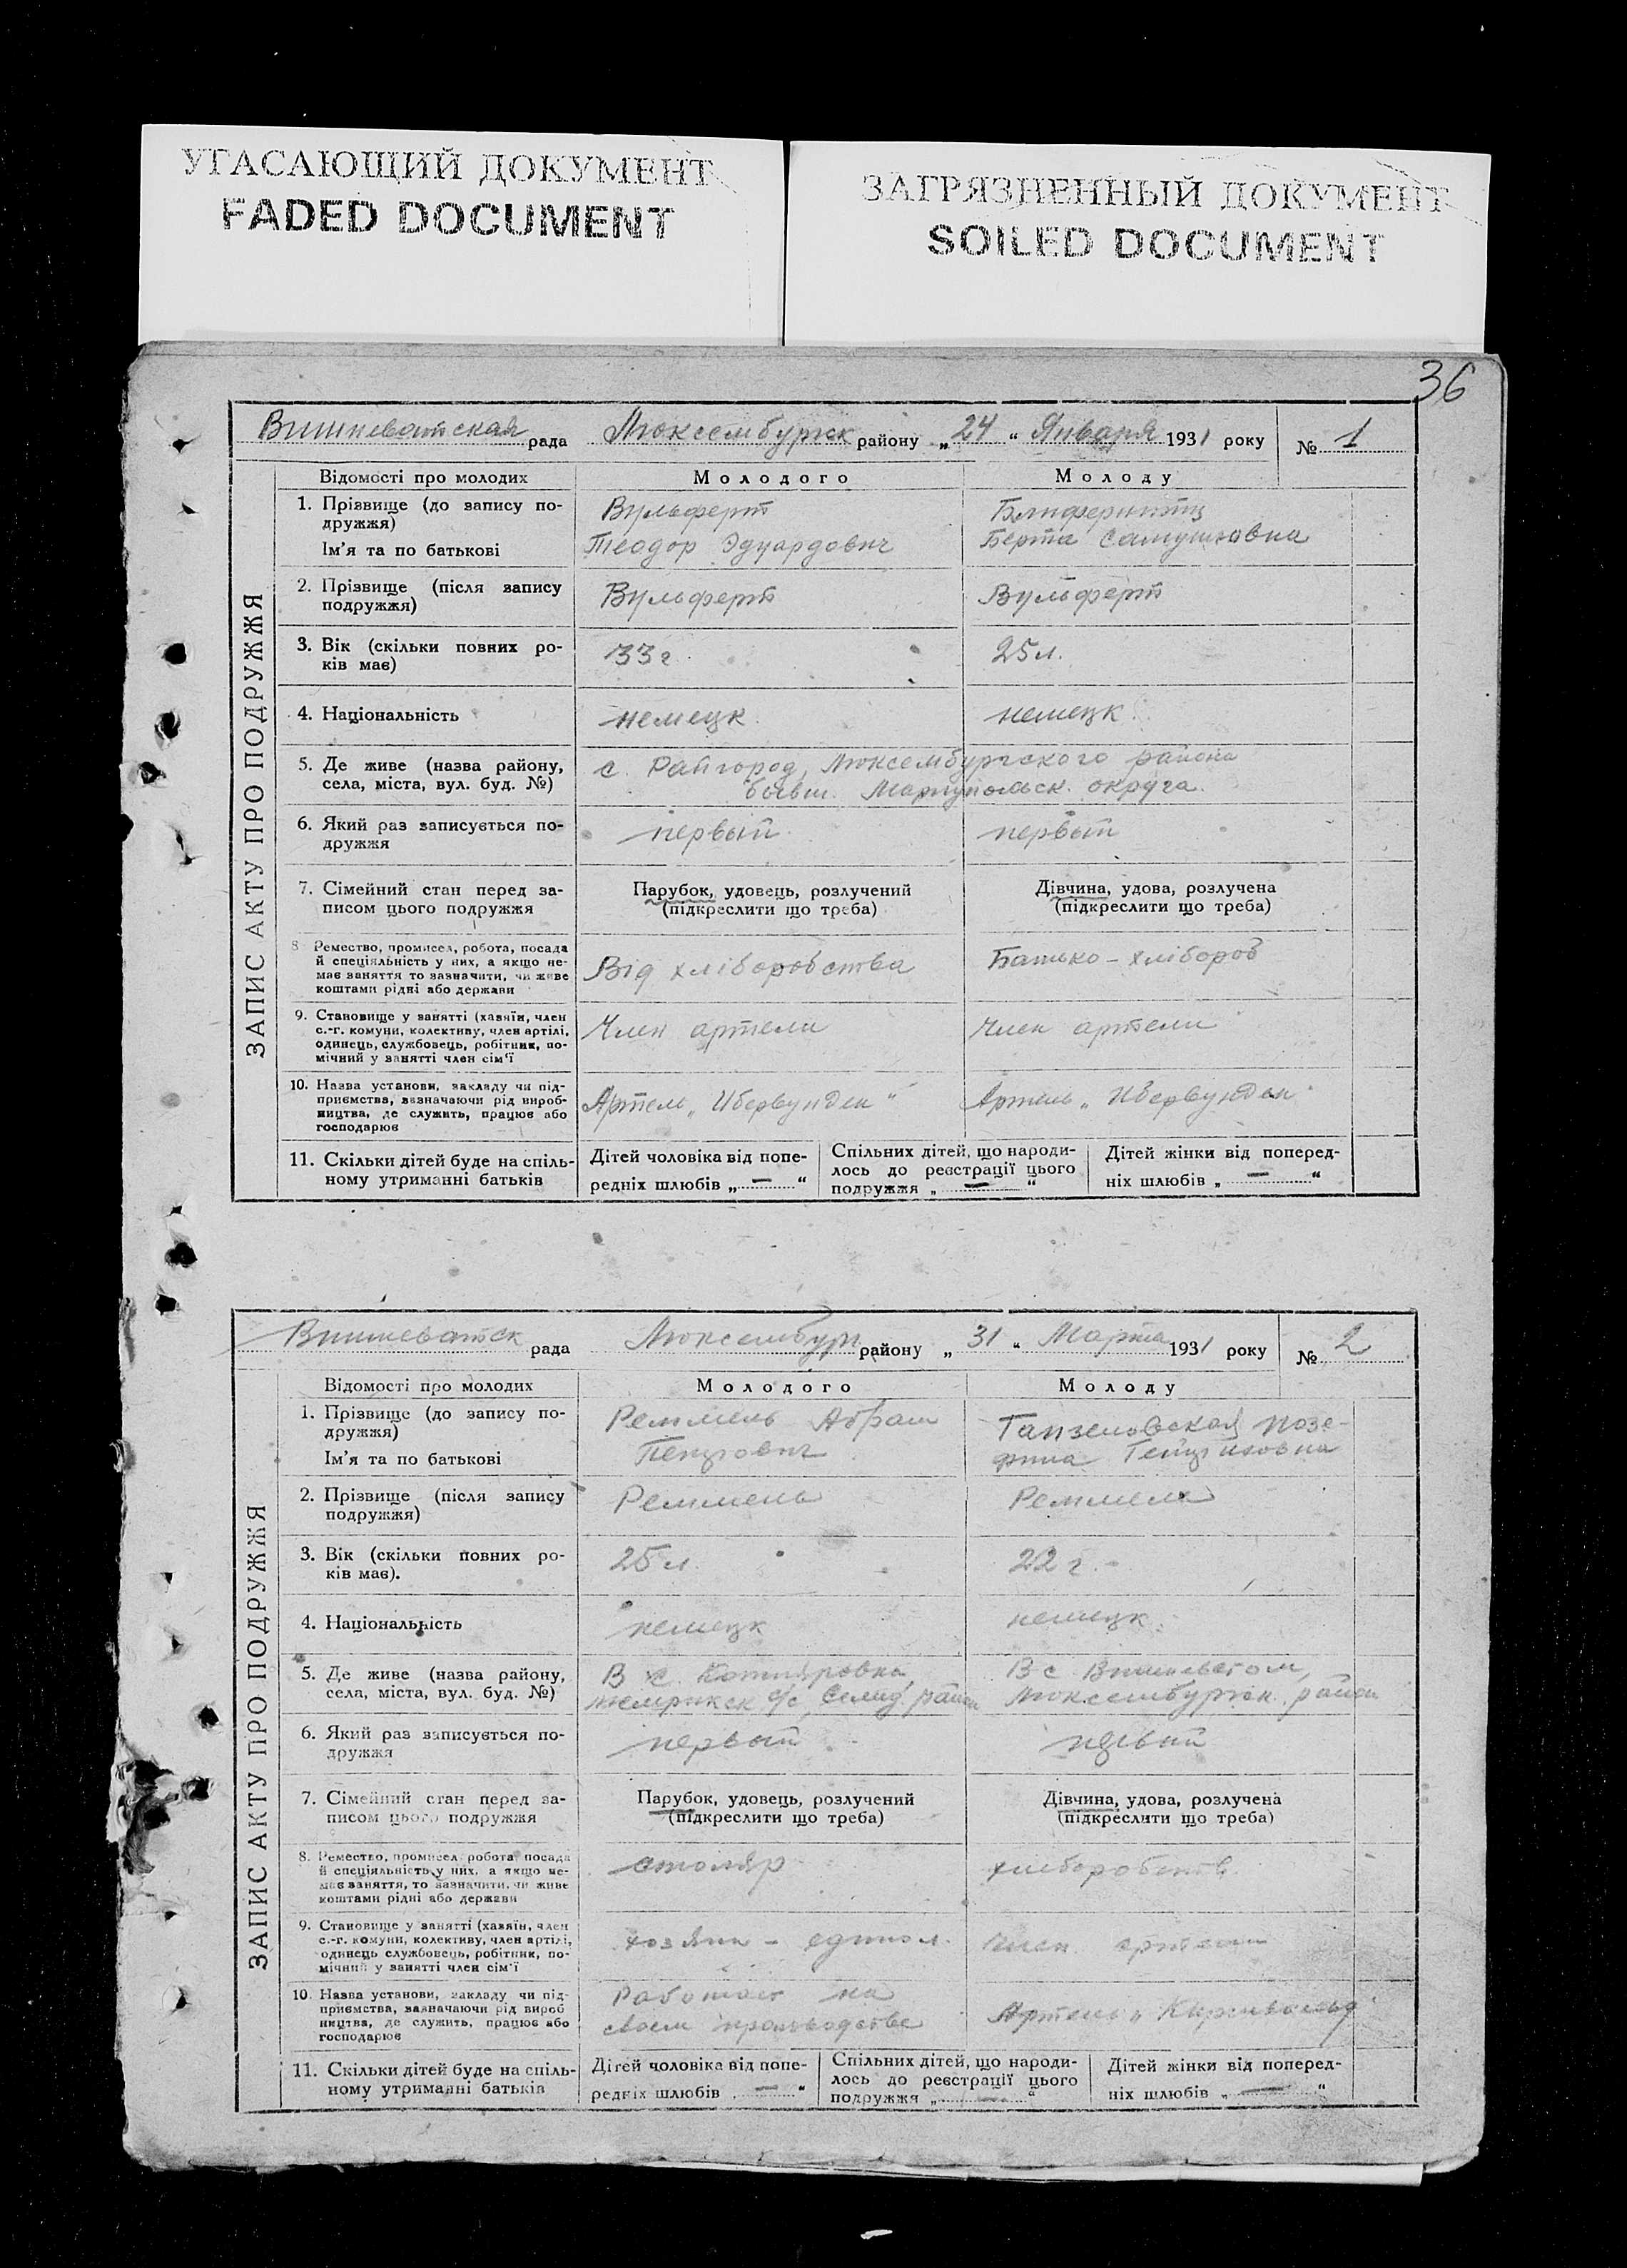 УГАСАЮЩИЙ ДОКУМЕНТ
FADED DOCUMENT
ЗАГРЯЗНЕННЫЙ ДОКУМЕНТ
SOILED DOCUMENT
36
Вишневатская рада Люксембургск району „24“ Января 1931 року № 1
ЗАПИС АКТУ ПРО ПОДРУЖЖЯ
Відомості про молодих Молодого Молоду
1. Прізвище (до запису по-
дружжя)
Ім'я та по батькові
Вульферт
Теодор Эдуардович
Берта Самуиловна
2. Прізвище (після запису
подружжя)
Вульферт
Вульферт
3. Вік (скільки повних ро-
ків має)
33 г.
25 л.
4. Національність
немецк.
немецк.
5. Де живе (назва району,
села, міста, вул. буд. №)
с. Райгород, Люксембургского района
бывш. Мариупольск. округа.
6. Який раз записується по-
дружжя
первый
первый
7. Сімейний стан перед за-
писом цього подружжя
Парубок, удовець, розлучений
(підкреслити що треба)
Дівчина, удова, розлучена
(підкреслити що треба)
8. Ремество, промисел, робота, посада
й спеціяльність у них, а якщо не-
має заняття то зазначити, чи живе
коштами рідні або держави
Від хліборобства
Батько - хлібороб
9. Становище у занятті (хазяїн, член
с.-г. комуни, колективу, член артілі,
одинець, службовець, робітник, по-
мічний у занятті член сім'ї
Член артели
Член артели
10. Назва установи, закладу чи під-
приємства, зазначаючи рід вироб-
ництва, де служить, працює або
господарює
Артель „Ибервунден“
Артель „Ибервунден“
11. Скільки дітей буде на спіль-
ному утриманні батьків
Дітей чоловіка від попе-
редніх шлюбів „ — “
Спільних дітей, що народи-
лось до реєстрації цього
подружжя „ — “
Дітей жінки від поперед-
ніх шлюбів „ — “
Вишневатск рада Люксембург району „31“ Марта 1931 року № 2
ЗАПИС АКТУ ПРО ПОДРУЖЖЯ
Відомості про молодих Молодого Молоду
1. Прізвище (до запису по-
дружжя)
Ім'я та по батькові
Реммель Абрам
2. Прізвище (після запису
подружжя)
Реммель
Реммель
3. Вік (скільки повних ро-
ків має).
25 л.
22 г.
4. Національність
немецк
немецк.
5. Де живе (назва району,
села, міста, вул. буд. №)
В с. Котляровка,
с/с, Селид. район
В с Вишневатом,
Люксембургск. район
6. Який раз записується по-
дружжя
первый
7. Сімейний стан перед за-
писом цього подружжя
Парубок, удовець, розлучений
(підкреслити що треба)
Дівчина, удова, розлучена
(підкреслити що треба)
8. Ремество, промисел робота посада
й спеціяльність у них, а якщо не-
має заняття, то зазначити, чи живе
коштами рідні або держави
столяр
9. Становище у занятті (хазяїн, член
с.-г. комуни, колективу, член артілі,
одинець службовець, робітник, по-
мічний у занятті член сім'ї
Член артели
10. Назва установи, закладу чи під-
приємства, зазначаючи рід вироб
ництва, де служить, працює або
господарює
Работает на
своем производстве
Артель
11. Скільки дітей буде на спіль-
ному утриманні батьків
Дітей чоловіка від попе-
редніх шлюбів „ — “
Спільних дітей, що народи-
лось до реєстрації цього
подружжя „ — “
Дітей жінки від поперед-
ніх шлюбів „ — “